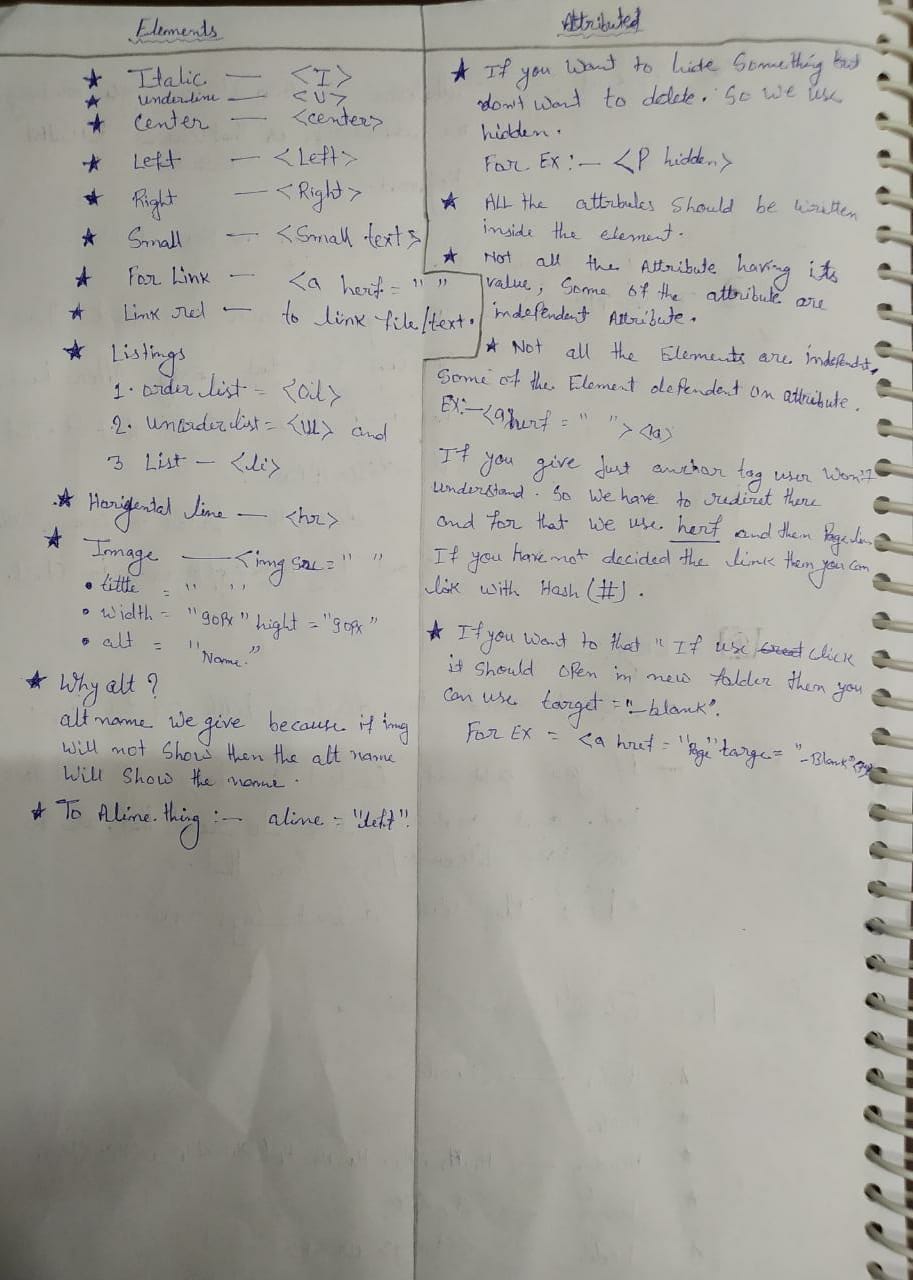 Elements
★ Italic — <I>
★ underline — <U>
★ Center — <center>
★ Left — <Left>
★ Right — <Right>
★ Small — <Small text>
★ For Link — <a herf = " "
★ Link rel — to link file/text.
★ Listings
1. order list = <Oil>
2. Unorder list = <Ul> and
3 List — <li>
★ Horigental line — <hr>
★ Image — <img src = " "
• tittle = " "
• width = "90Px" hight = "90Px"
• alt = "Name."
★ Why alt ?
alt name we give because if img
will not Show then the alt name
Will Show the name.
★ To Aline thing :— aline = "left".
Attributed
★ If you Want to hide Something but
don't want to delete. So We use
hidden.
For Ex :— <P hidden>
★ ALL the attributes Should be written
inside the element.
★ Not all the Attribute having its
value, Some of the attribute are
independent Attribute.
★ Not all the Elements are independent,
Some of the Element dependent on attribute.
EX:— <a herf = " "> <a>
If you give Just anchor tag user Won't
Understand. So We have to rediret there
and for that we use herf and them Page
If you have not decided the link them you can
lik with Hash (#).
★ If you Want to that "If use click
it Should Open in new folder them you
Can use target = "_blank".
For Ex = <a href = "Page" targe = "_Blank"